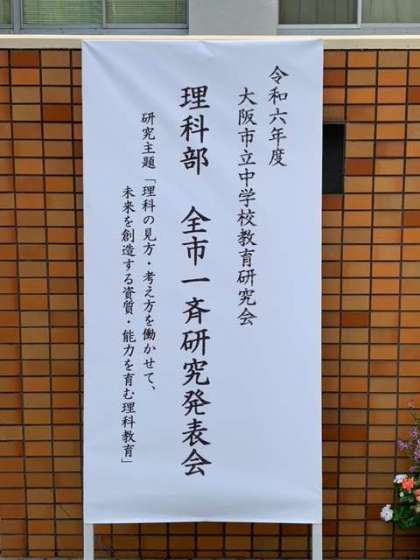 令和六年度
大阪市立中学校教育研究会
理科部　全市一斉研究発表会
研究主題「理科の見方・考え方を働かせて、
未来を創造する資質・能力を育む理科教育」